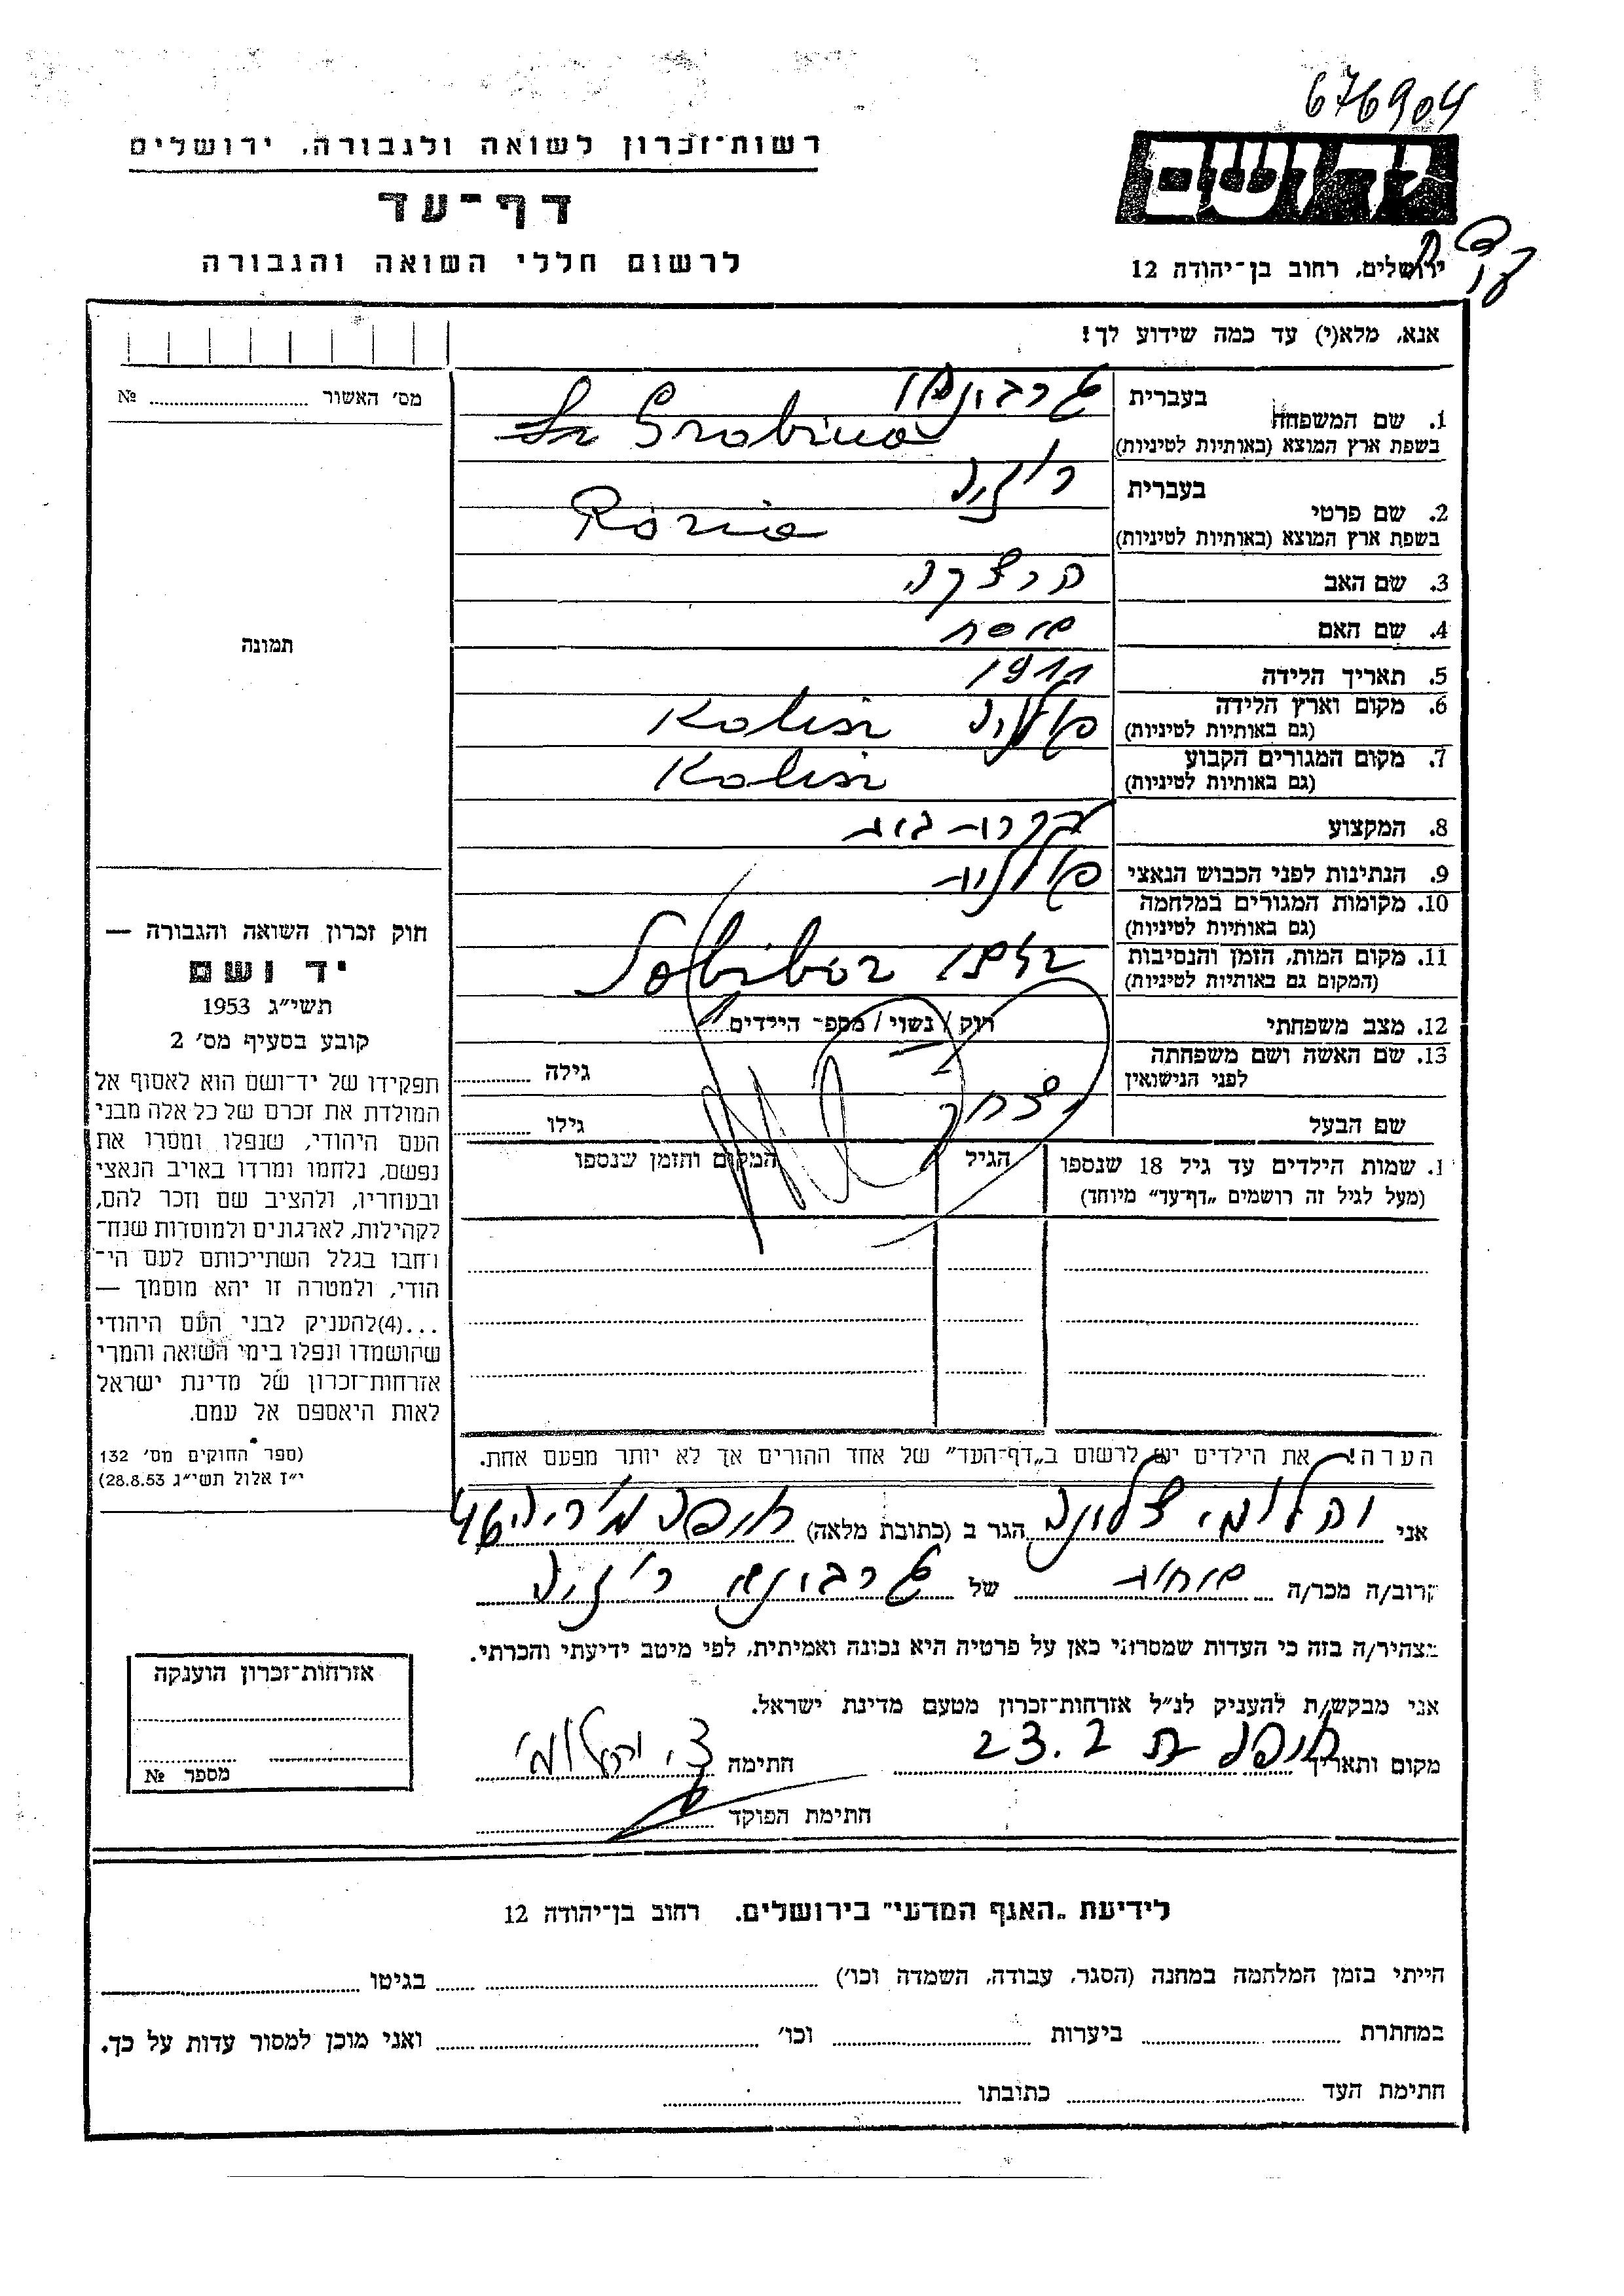 676904
רשות־זכרון לשואה ולגבורה, ירושלים
יד ושם
דף־עד
לרשום חללי השואה והגבורה
ירושלים, רחוב בן־יהודה 12
אנא, מלא(י) עד כמה שידוע לך!
מס׳ האשור № 
1. שם המשפחה בעברית
בשפת ארץ המוצא (באותיות לטיניות) Grabina
2. שם פרטי בעברית רוז׳ה
בשפת ארץ המוצא (באותיות לטיניות) Rózia
3. שם האב
4. שם האם
5. תאריך הלידה 1911
6. מקום וארץ הלידה פולניה Kalisz
(גם באותיות לטיניות)
7. מקום המגורים הקבוע Kalisz
(גם באותיות לטיניות)
8. המקצוע עקרת בית
9. הנתינות לפני הכבוש הנאצי פולנית
10. מקומות המגורים במלחמה
(גם באותיות לטיניות)
11. מקום המות, הזמן והנסיבות Sobibor
(המקום גם באותיות לטיניות)
12. מצב משפחתי רוק / נשוי / מספר הילדים
13. שם האשה ושם משפחתה גילה
לפני הנישואין
שם הבעל יצחק גילו
תמונה
חוק זכרון השואה והגבורה —
יד ושם
תשי״ג 1953
קובע בסעיף מס׳ 2
תפקידו של יד־ושם הוא לאסוף אל
המולדת את זכרם של כל אלה מבני
העם היהודי, שנפלו ומסרו את
נפשם, נלחמו ומרדו באויב הנאצי
ובעוזריו, ולהציב שם וזכר להם,
לקהילות, לארגונים ולמוסדות שנח־
רחבו בגלל השתייכותם לעם הי־
הודי, ולמטרה זו יהא מוסמך —
...(4)להעניק לבני העם היהודי
שהושמדו ונפלו בימי השואה והמרי
אזרחות־זכרון של מדינת ישראל
לאות היאספם אל עמם.
(ספר החוקים מס׳ 132
י״ז אלול תשי״ג 28.8.53)
1. שמות הילדים עד גיל 18 שנספו הגיל המקום והזמן שנספו
(מעל לגיל זה רושמים „דף־עד״ מיוחד)
הערה! את הילדים יש לרשום ב„דף־העד״ של אחד ההורים אך לא יותר מפעם אחת.
אני יהלומי הגר ב (כתובת מלאה) חיפה
קרוב/ה מכר/ה של רוז׳ה
מצהיר/ה בזה כי העדות שמסרתי כאן על פרטיה היא נכונה ואמיתית, לפי מיטב ידיעתי והכרתי.
אני מבקש/ת להעניק לנ״ל אזרחות־זכרון מטעם מדינת ישראל.
מקום ותאריך חיפה 23.2 חתימה צ. יהלומי
חתימת הפוקד
אזרחות־זכרון הוענקה
מספר №
לידיעת „האגף המדעי״ בירושלים. רחוב בן־יהודה 12
הייתי בזמן המלחמה במחנה (הסגר, עבודה, השמדה וכו׳) בגיטו
במחתרת ביערות וכו׳ ואני מוכן למסור עדות על כך.
חתימת העד כתובתו